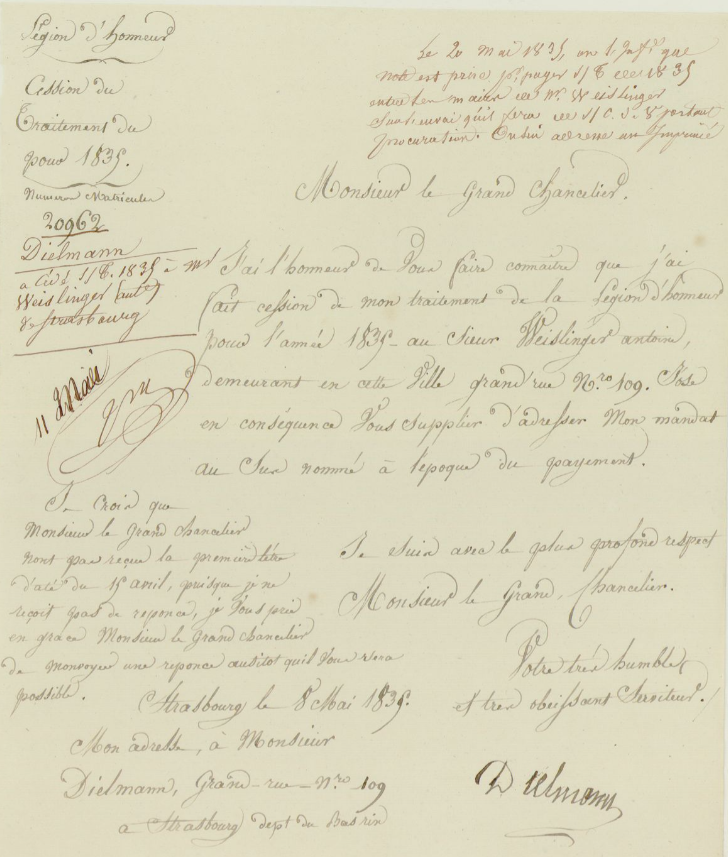 Légion d'honneur
Cession du
Traitement du
pour 1835.
Numero Matricule
20962
Dielmann
a cédé s/t. 1835 à Mr
Weislinger (ant.)
de Strasbourg
11 Mai
Le 20 Mai 1835, un
note est prise pr. payer s/t de 1835
entre les mains de Mr. Weislinger
sur l'envoi qu'il fera de s/c. de v. portant
procuration. On lui adresse un Imprimé
Monsieur le Grand Chancelier.
J'ai l'honneur de Vous faire connaître que j'ai
fait cession de mon traitement de la Légion d'honneur
pour l'année 1835 au Sieur Weislinger antoine,
demeurant en cette Ville grand'rue N.ro 109. J'ose
en conséquence Vous supplier d'adresser Mon mandat
au Sus nommé à l'epoque du payement.
Je Crois que
Monsieur le Grand Chancelier
nont pas reçue la première lètre
d'até du 15 avril, puisque je ne
reçoit pas de reponce, je Vous prie
en grace Monsieur le Grand Chancelier
de m'envoyer une reponce ausitot quil Vous sera
possible.
Je suis avec le plus profond respect
Monsieur le Grand, Chancelier.
Votre très humble,
et très obeissant Serviteur.
Strasbourg le 8 Mai 1835.
Mon adresse, à Monsieur
Dielmann, Grand-rue-N.ro 109
a Strasbourg dept du Basrin
Dielmann